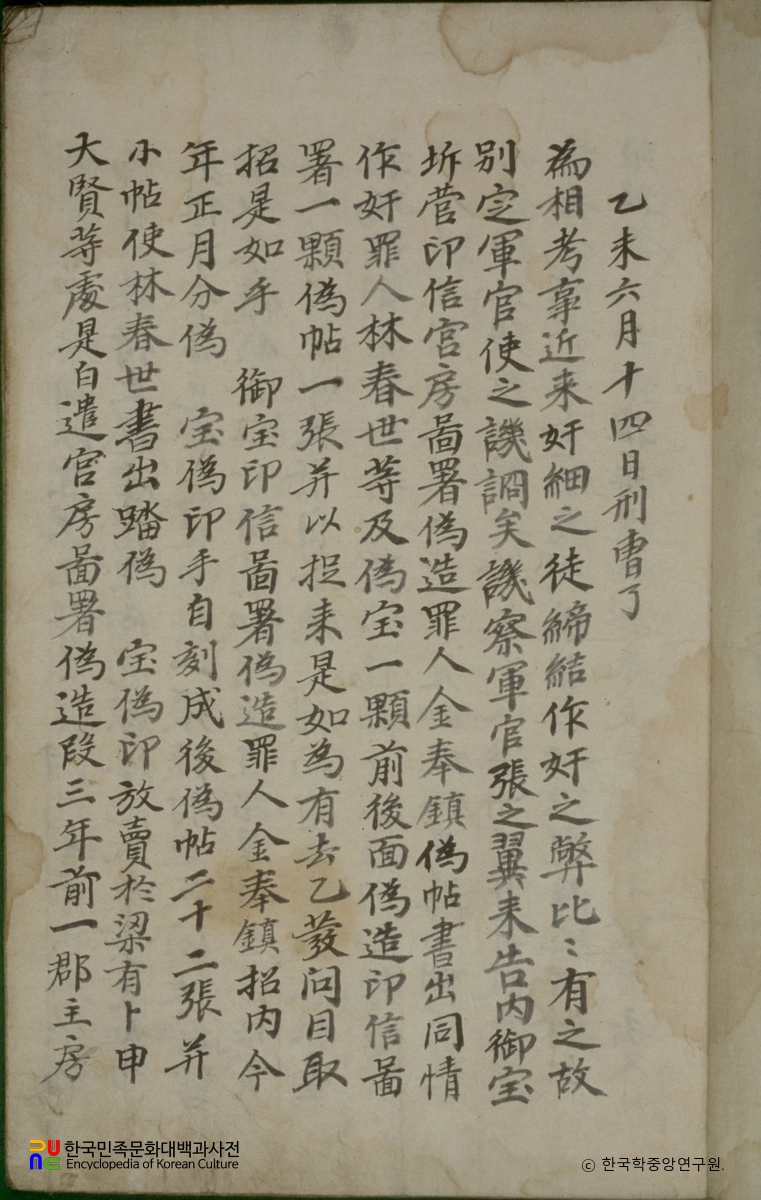 乙未六月十四日刑曹了
為相考事近来奸細之徒締結作奸之弊比〻有之故
別定軍官使之譏詗矣譏察軍官張之翼来告内御宝
圻營印信宮房啚署偽造罪人金奉鎮偽帖書出同情
作奸罪人林春世等及偽宝一顆前後面偽造印信啚
署一顆偽帖一張并以捉来是如為有去乙發问目取
招是如乎 御宝印信啚署偽造罪人金奉鎮招内今
年正月分偽 宝偽印手自刻成後偽帖二十二張并
小帖使林春世書出踏偽 宝偽印放賣於梁有卜申
大賢等處是白遣宮房啚署偽造段三年前一郡主房
한국민족문화대백과사전
Encyclopedia of Korean Culture
ⓒ 한국학중앙연구원.